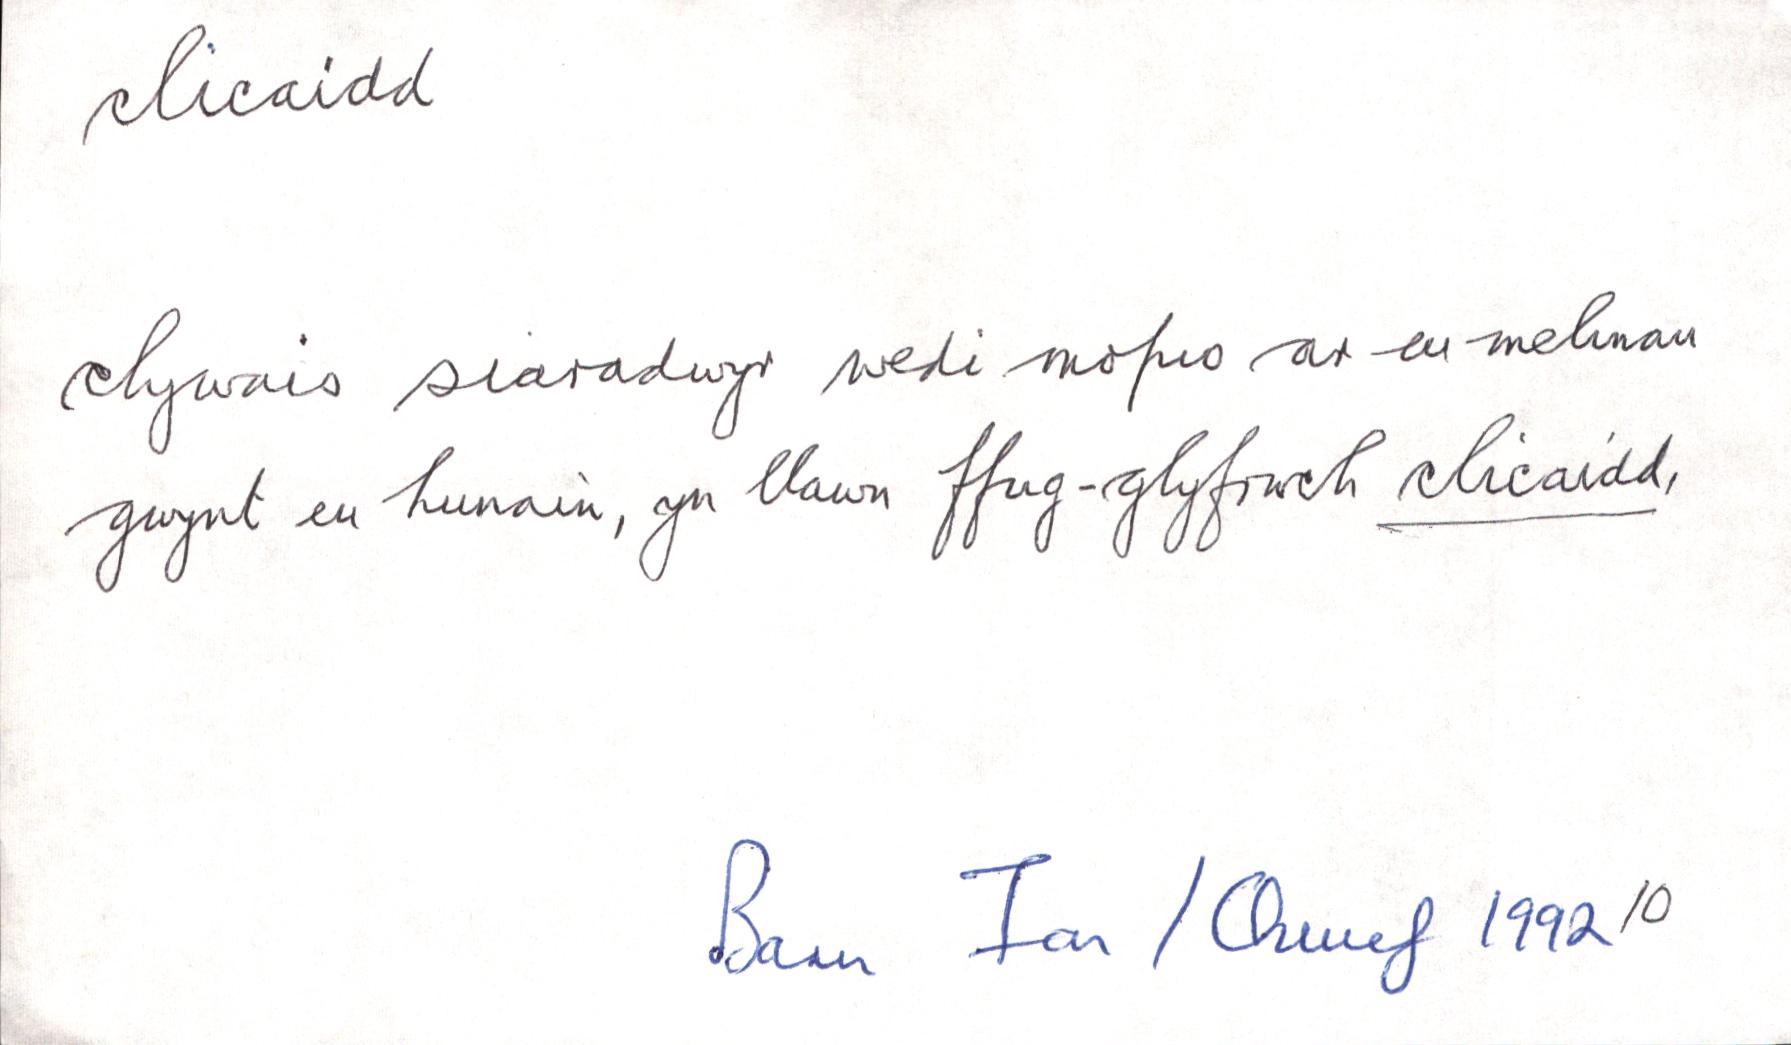 clicaidd
clywais siaradwyr wedi mopio ar eu melinau
gwynt eu hunain, yn llawn ffug-glyfrwch clicaidd,
Barn Ion / Chwef 1992 10